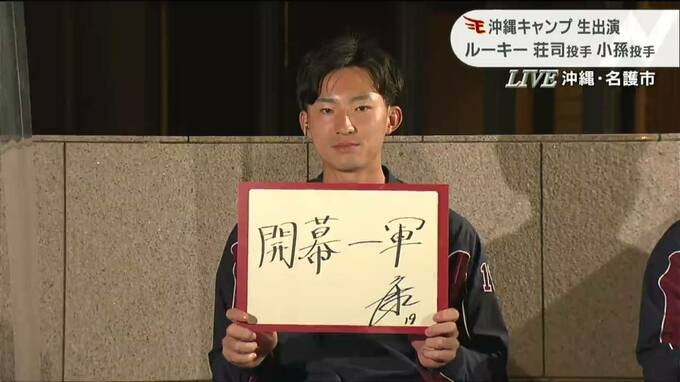 沖縄キャンプ 生出演
ルーキー 荘司投手 小孫投手
LIVE 沖縄・名護市
開幕一軍
19